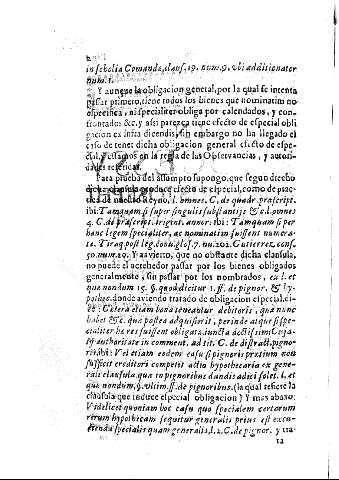 2
in scholia Comanda, claus. 19. num. 9. vbi additionator
num. 1.
Y aunque la obligacion general, por la qual se intenta
passar primero, tiene todos los bienes que nominatim no
especifica, ni specialiter obliga por calendados, y con-
frontados &c. y assi parece tiene efecto de especial obli
gacion ex infra dicendis, sin embargo no ha llegado el
caso de tener dicha obligacion general efecto de espe-
cial, y estamos en la regla de las Observancias, y autori-
dades referidas.
Para prueba del assumpto supongo, que segun derecho
dicha clausula produce efecto de especial, como de prac
tica de nuestro Reyno, l. omnes. C. de quadr. præscript.
ibi: Tamquam si super singulis substantijs &c. l. omnes
4. C. de præscript. trigint. annor. ibi: Tamquam si per
hanc legem specialiter, ac nominatim fuissent numera-
ta. Tiraq. post leg. conu. glos. 7. nu. 202. Gutierrez, cons.
30. num. 29. Y advierto, que no obstante dicha clausula,
no puede el acrehedor passar por los bienes obligados
generalmente, sin passar por los nombrados, ex l. et
que nondum 15. §. quod dicitur 1. ff. de pignor. & hy-
pothec. donde aviendo tratado de obligacion especial, di-
ze: Cetera etiam bona teneantur debitoris, quæ nunc
habet &c. que postea adquisierit, perinde atque si spe-
cialiter he res fuissent obligate, iuncta
authoritate in comment. ad tit. C. de distract. pigno-
ris: ibi: Vel etiam eodem casu si pignoris pretium non
suffecit creditori competit actio hypothecaria ex gene-
rali clausula, quæ in pignoribus dandis adici solet. l. et
que nondum, §. vltim. ff. de pignoribus. (la qual refiere la
clausula que induce especial obligacion) Y mas abaxo:
Videlicet quoniam hoc casu quo specialem certarum
rerum hypothecam sequitur generalis prius est excu-
tienda specialis quam generalis, l. 2. C. de pignor. y tra-
ta